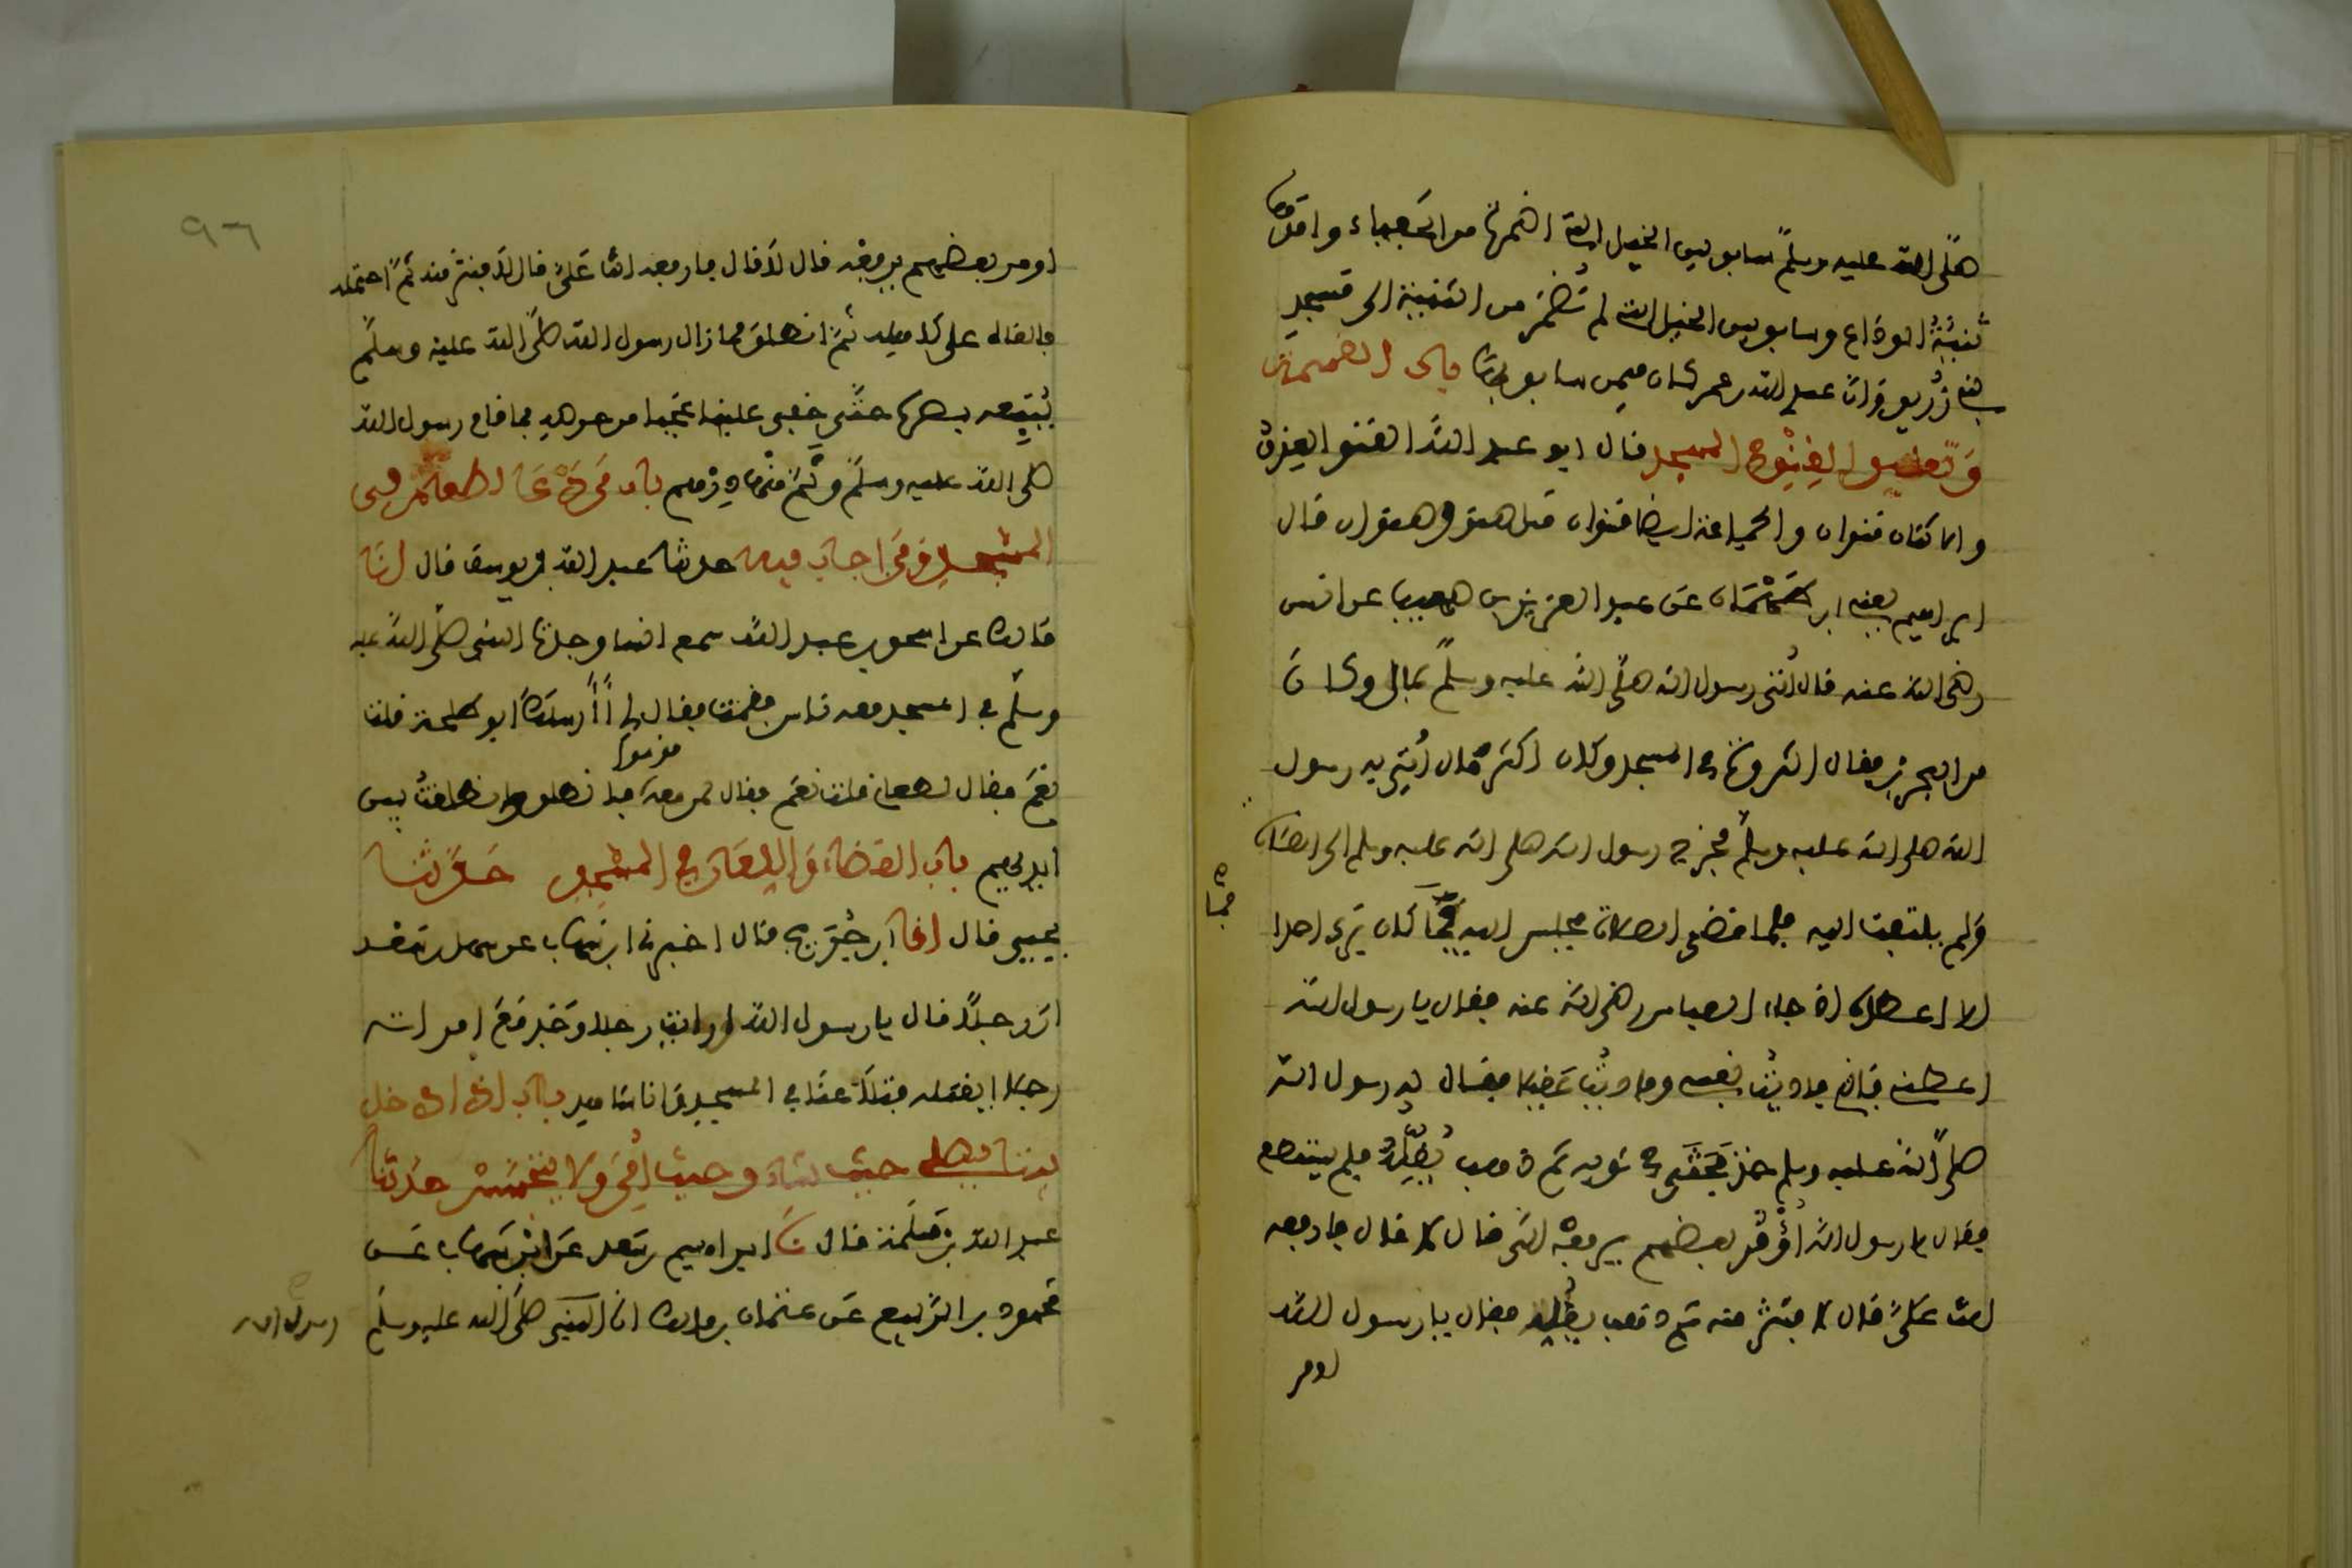 صلى الله عليه وسلم سابق بين الخيل التي اضمرت من الحفياء وامدها
ثنية الوداع وسابق بين الخيل التي لم تضمر من الثنية الى مسجد
بني زريق وان عبد الله بن عمر كان فيمن سابق بها باب القسمة
وتعليق القنو في المسجد قال ابو عبد الله القنو العذق
والاثنان قنوان والجماعة ايضا قنوان مثل صنو وصنوان قال
ابراهيم يعني ابن طهمان عن عبد العزيز بن صهيب عن انس
رضي الله عنه قال أتي رسول الله صلى الله عليه وسلم بمال وكان
من البحرين فقال انثروه في المسجد وكان اكثر مال أتي به رسول
الله صلى الله عليه وسلم فخرج رسول الله صلى الله عليه وسلم الى الصلاة
ولم يلتفت اليه فلما قضى الصلاة فجلس اليه فما كان يرى احدا
فما
الا اعطاه اذ جاء العباس رضي الله عنه فقال يا رسول الله
اعطني فاني فاديت نفسي وفاديت عقيلا فقال له رسول الله
صلى الله عليه وسلم خذ فحثى في ثوبه ثم ذهب يقله فلم يستطع
فقال يا رسول الله أؤمر بعضهم يرفعه الي قال لا قال فارفعه
انت علي قال لا فنثر منه ثم ذهب يقله فقال يا رسول الله
اومر
٩٦
اومر بعضهم يرفعه قال لا قال فارفعه انت علي قال لا فنثر منه ثم احتمله
فالقاه على كاهله ثم انطلق فما زال رسول الله صلى الله عليه وسلم
يتبعه بصره حتى خفي علينا عجبا من حرصه فما قام رسول الله
صلى الله عليه وسلم وثم منها درهم باب من دعا لطعام في
المسجد ومن اجاب فيه حدثنا عبد الله بن يوسف قال انا
مالك عن اسحق بن عبد الله سمع انسا وجدت النبي صلى الله عليه
وسلم في المسجد معه ناس فقمت فقال لي أأرسلك ابو طلحة قلت
نعم فقال لطعام قلت نعم فقال لمن معه قوموا فانطلق وانطلقت بين
ايديهم باب القضاء واللعان في المسجد حدثنا
يحيى قال انا ابن جريج قال اخبرني ابن شهاب عن سهل بن سعد
ان رجلا قال يا رسول الله ارايت رجلا وجد مع امراته
رجلا ايقتله فتلاعنا في المسجد وانا شاهد باب اذا دخل
بيتا يصلي حيث شاء وحيث امر ولا يتجسس حدثنا
عبد الله بن مسلمة قال نا ابراهيم بن سعد عن ابن شهاب عن
محمود بن الربيع عن عتبان بن مالك ان النبي صلى الله عليه وسلم
رسول الله